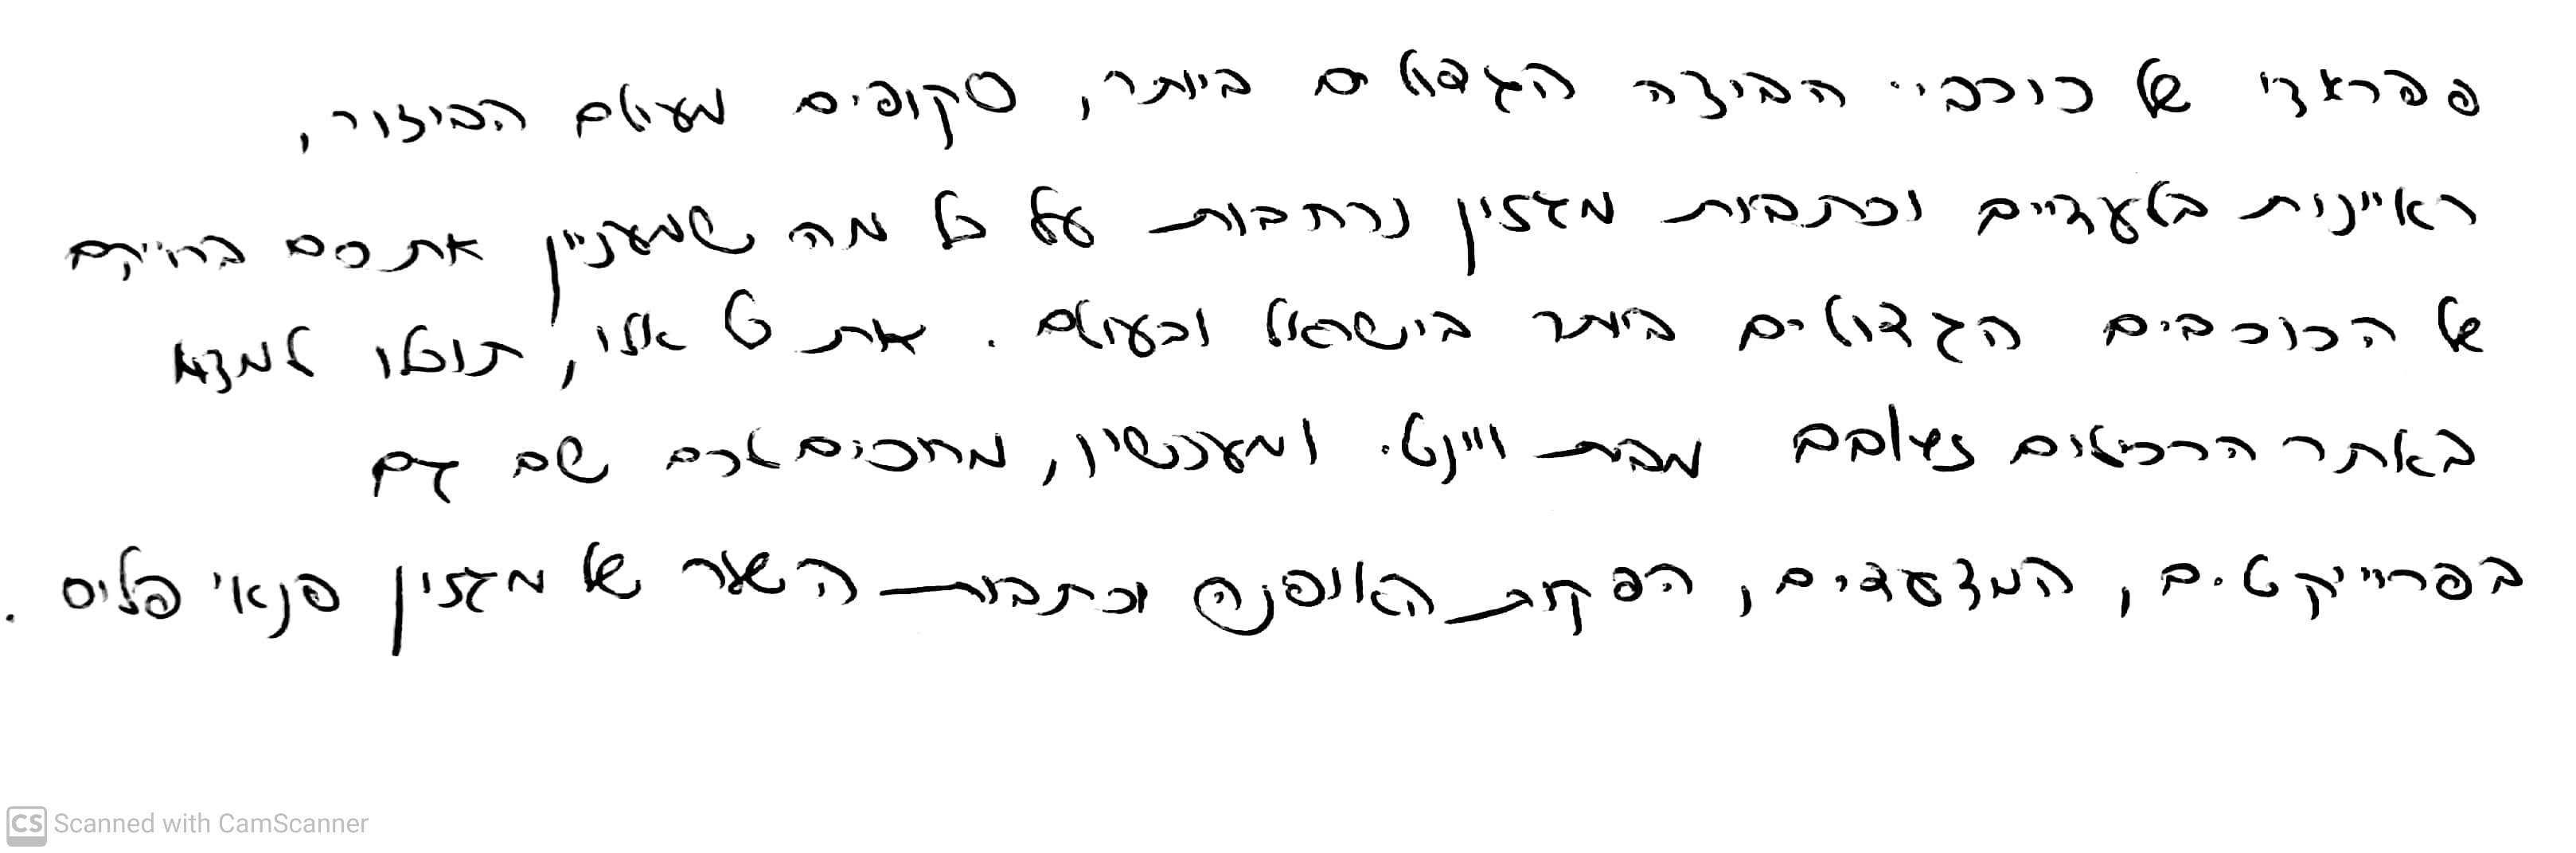 פפראצי של כוכבי הביצה הגדולים ביותר, סקופים מעולם הבידור,
ראיונות בלעדיים וכתבות מגזין נרחבות על כל מה שמעניין אתכם בחייהם
של הכוכבים הגדולים ביותר בישראל ובעולם. את כל אלו, תוכלו למצוא
באתר הרכילות מבית ויינט. ומעכשיו, מחכים לכם שם גם
בפרוייקטים, המצעדים, הפקות האופנה וכתבות השער של מגזין פנאי פלוס.
CS Scanned with CamScanner